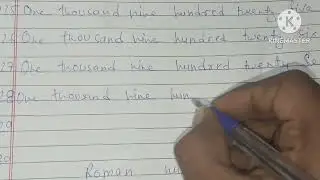 25 One thousand nine hundred twenty five
26 One thousand nine hundred twenty six
27 One thousand nine hundred twenty Se
28 One thousand nine hun
29
Roman
KINEMASTER